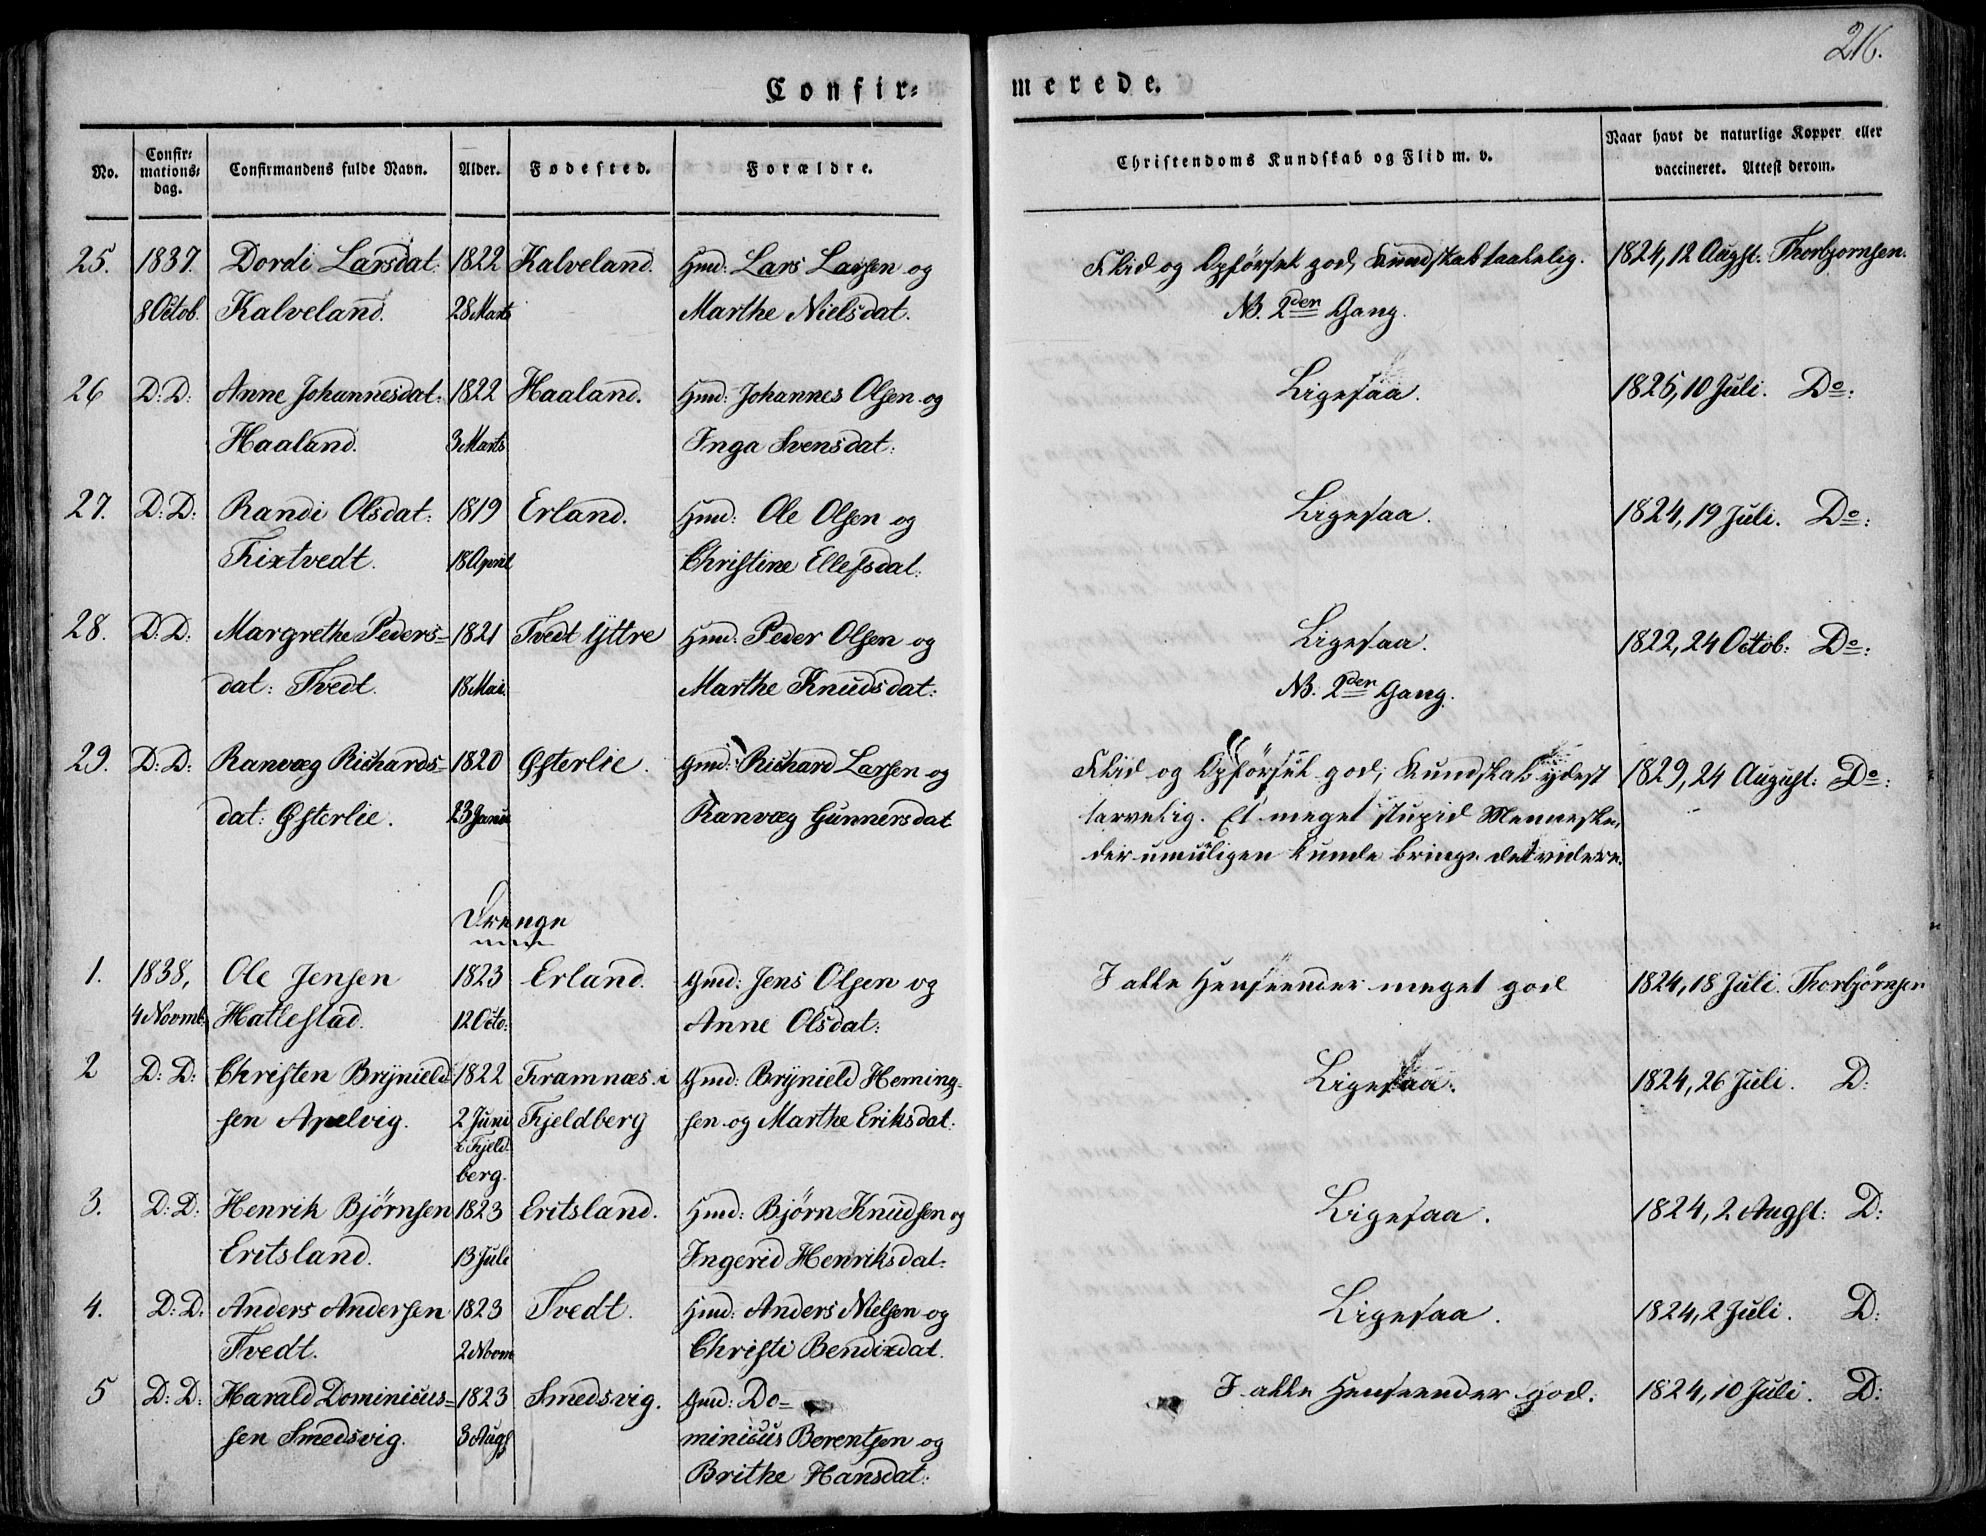 216.
Confir= merede.
No. Confir= mations= dag. Confirmandens fulde Navn. Alder. Fødested. Forældre. Christendoms Kundskab og Flid m. v. Naar havt de naturlige Kopper eller vaccineret. Attest derom.
25. 1837. Dordi Larsdat. 1822 Kalveland. Gmd: Lars Larsen og Flid og Opførsel god, Kundskab taalelig. 1824, 12 Augst. Thorbjornsen.
8 Octob. Kalveland. 28 Marts Marthe Nielsdat. NB. 2den Gang.
26 D: D: Anne Johannesdat: 1822 Haaland. Hmd: Johannes Olsen og Ligesaa. 1825, 10 Juli. Do:
Haaland. 3 Marts Inga Svensdat:
27. D: D: Randi Olsdat: 1819 Erland. Hmd: Ole Olsen og Ligesaa. 1824, 19 Juli. Do:
Fixtvedt. 18 April Christine Ellefsdat:
28. D: D: Margrethe Peders= 1821 Tvedt Yttre Hmd: Peder Olsen og Ligesaa. 1822, 24 Octob: Do:
dat: Tvedt. 18 Mai Marthe Knudsdat: NB. 2den Gang.
29. D: D: Ranvæg Richards= 1820 Østerlie. Gmd: Richard Larsen og Flid og Opførsel god, Kundskab ydest 1829, 24 August: Do:
dat: Østerlie. 23 Janu Ranvæg Gunnersdat tarvelig. Et meget stupid Menneske,
der umuligen kunde bringe det videre.
Drenge
1. 1838, Ole Jensen 1823 Erland. Gmd: Jens Olsen og I alle Henseender meget god 1824, 18 Juli. Thorbjørnsen
4 Novmb: Hatlestad. 12 Octo: Anne Olsdat:
2 D: D: Christen Brynield 1822 Framnæs i Gmd: Brynield Heming= Ligesaa. 1824, 26 Juli. D:
sen Apelvig. 2 Juni Fjeldberg sen og Marthe Eriksdat:
i Fjeld=
berg.
3. D: D: Henrik Bjørnsen 1823 Eritsland. Hmd: Bjørn Knudsen og Ligesaa. 1824, 2 Augst: D:
Eritsland. 13 Juli Ingerid Henriksdat:
4. D: D: Anders Andersen 1823 Tvedt. Hmd: Anders Nielsen og Ligesaa. 1824, 2 Juli. D:
Tvedt. 2 Novm Christi Bendixdat.
5 D: D: Harald Dominicus= 1823 Smedsvig. Gmd: Do= I alle Henseender god. 1824, 10 Juli. D:
sen Smedsvig. 3 Augs minicus Berentsen og
Brithe Hansdat: